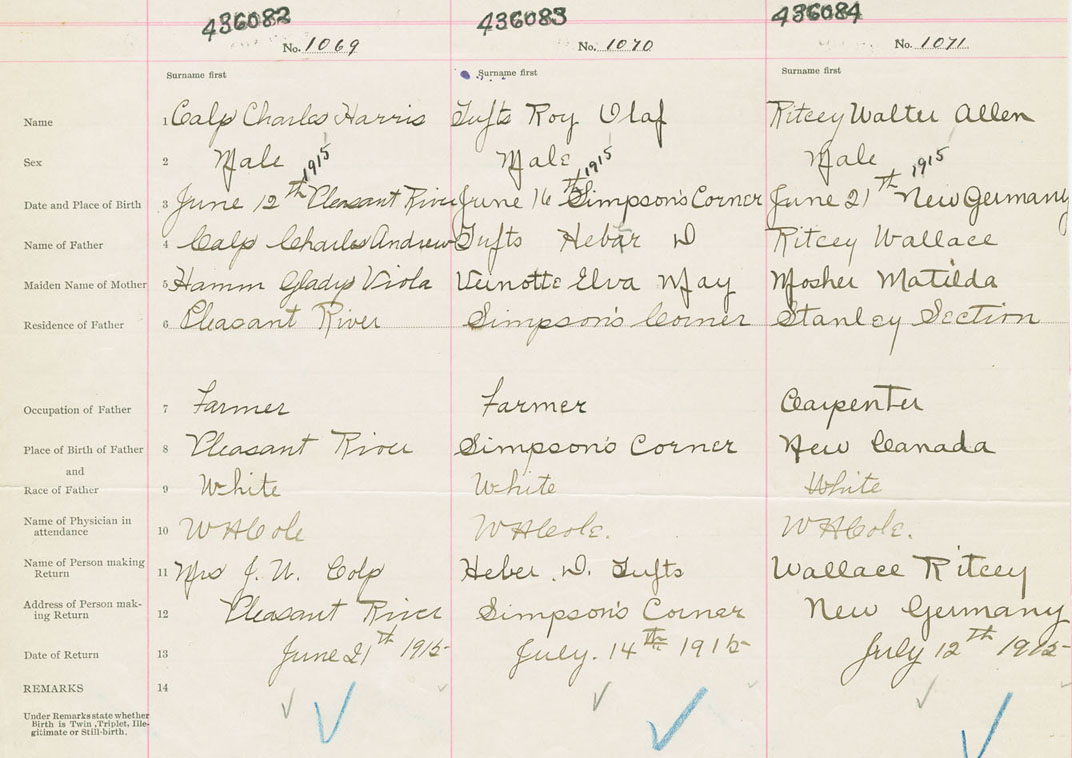 436082 436083 436084
No. 1069 No. 1070 No. 1071
Surname first Surname first Surname first
Name 1 Calp Charles Harris Tufts Roy Olaf Ritcey Walter Allen
Sex 2 Male Male Male
1915 1915 1915
Date and Place of Birth 3 June 12th Pleasant River June 16th Simpson's Corner June 21th New Germany
Name of Father 4 Calp Charles Andrew Tufts Hebar D Ritcey Wallace
Maiden Name of Mother 5 Hamm Gladys Viola Veinotte Elva May Mosher Matilda
Residence of Father 6 Pleasant River Simpson's Corner Stanley Section
Occupation of Father 7 Farmer Farmer Carpenter
Place of Birth of Father 8 Pleasant River Simpson's Corner New Canada
and
Race of Father 9 White White White
Name of Physician in
attendance 10 W H Cole W H Cole. W H Cole.
Name of Person making
Return 11 Mrs J. W. Colp Heber. D. Tufts Wallace Ritcey
Address of Person mak-
ing Return 12 Pleasant River Simpson's Corner New Germany
Date of Return 13 June 21th 1915 July. 14th 1915 July 12th 1915
REMARKS 14
Under Remarks state whether
Birth is Twin, Triplet, Ille-
gitimate or Still-birth.